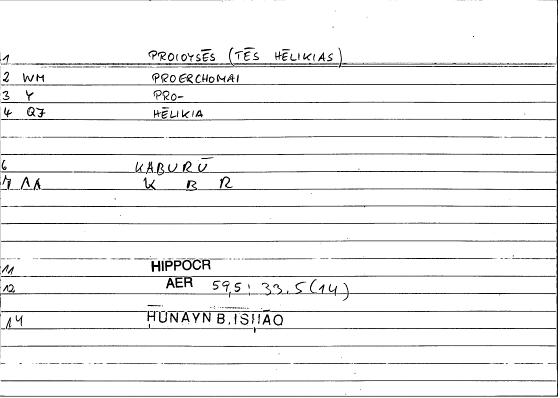 1 PROIOYSĒS (TĒS HĒLIKIAS)
2 WM PROERCHOMAI
3 Y PRO-
4 QJ HĒLIKIA
6 KABURŪ
7 AA K B R
11 HIPPOCR
12 AER 59,5 : 33.5 (14)
14 ḤUNAYN B. ISḤĀQ